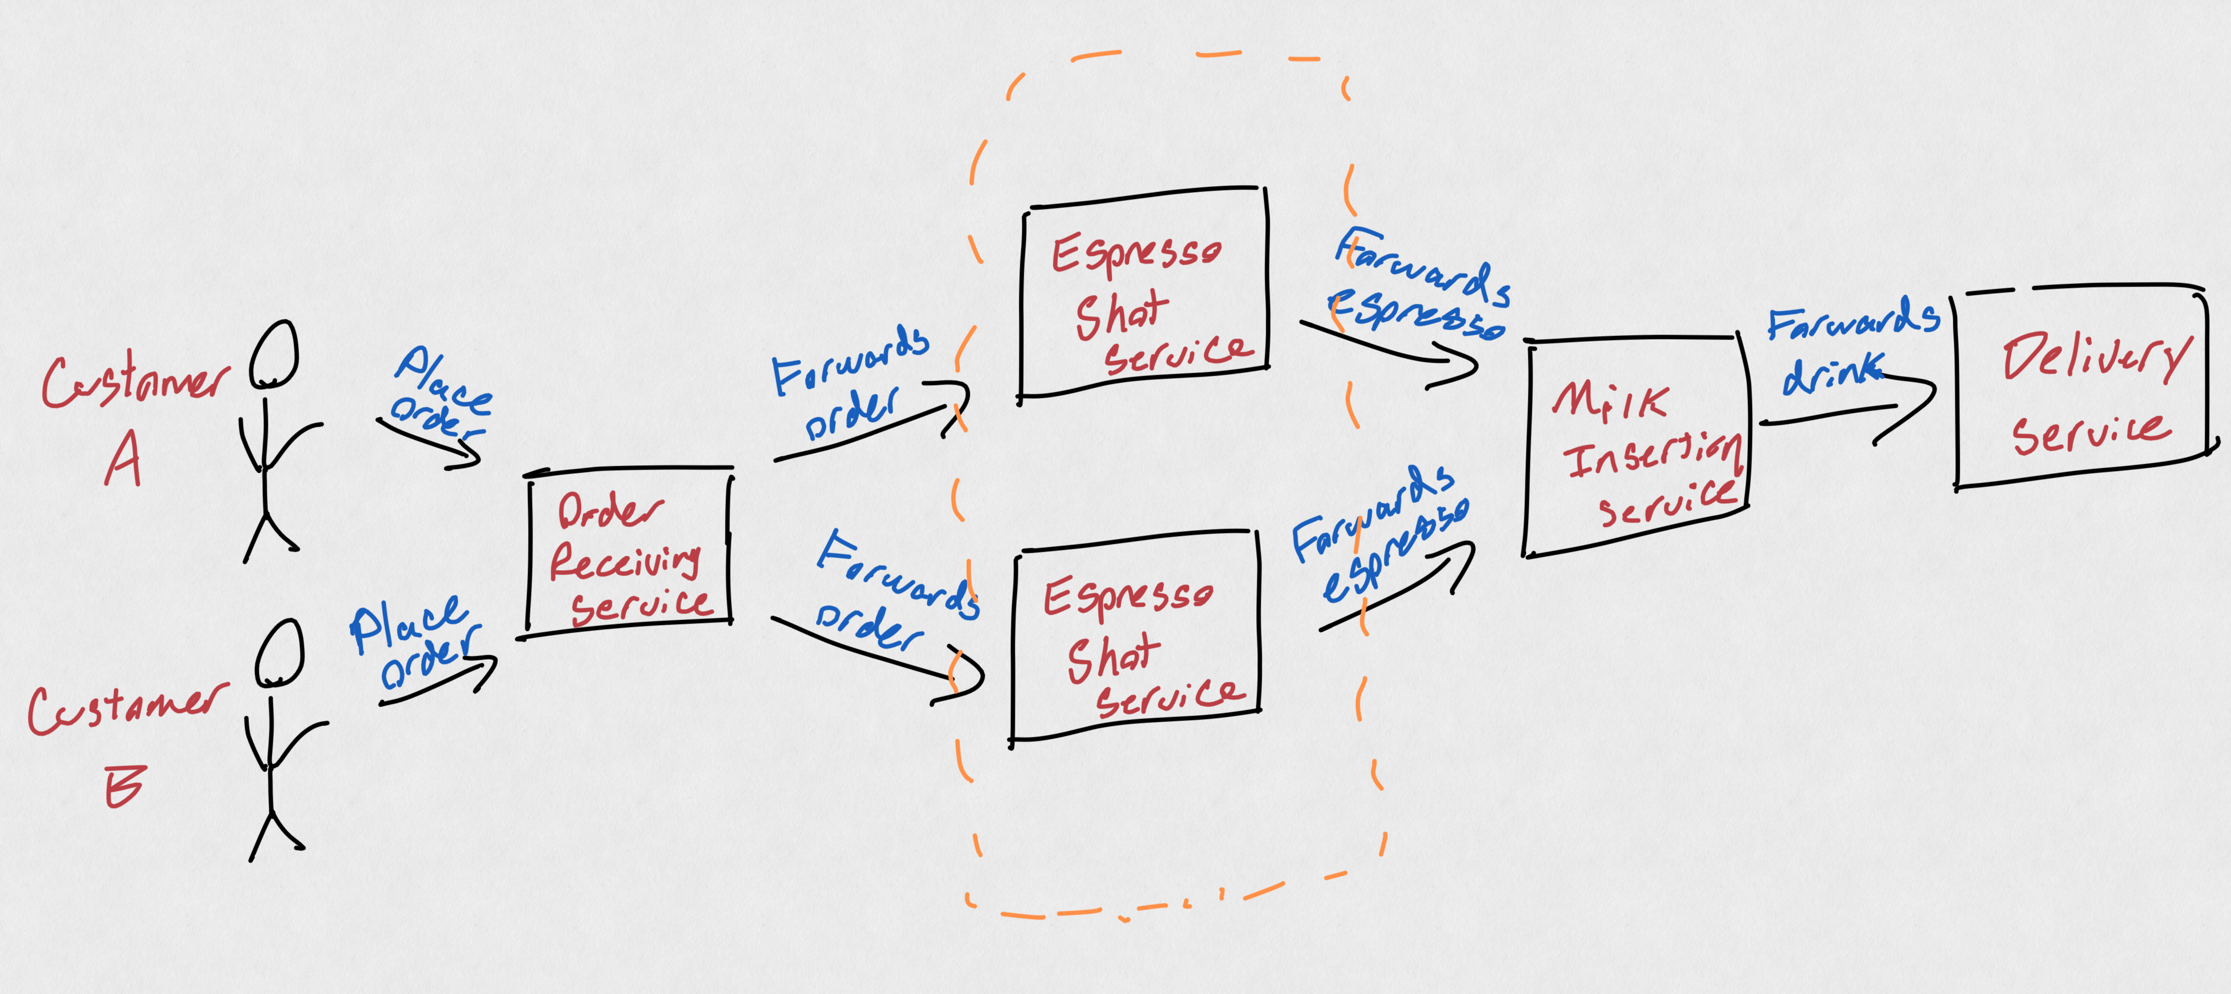 Customer
A
Place
order
Customer
B
Place
order
Order
Receiving
Service
Forwards
order
Forwards
order
Espresso
Shot
Service
Espresso
Shot
Service
Forwards
espresso
Forwards
espresso
Milk
Insertion
Service
Forwards
drink
Delivery
Service